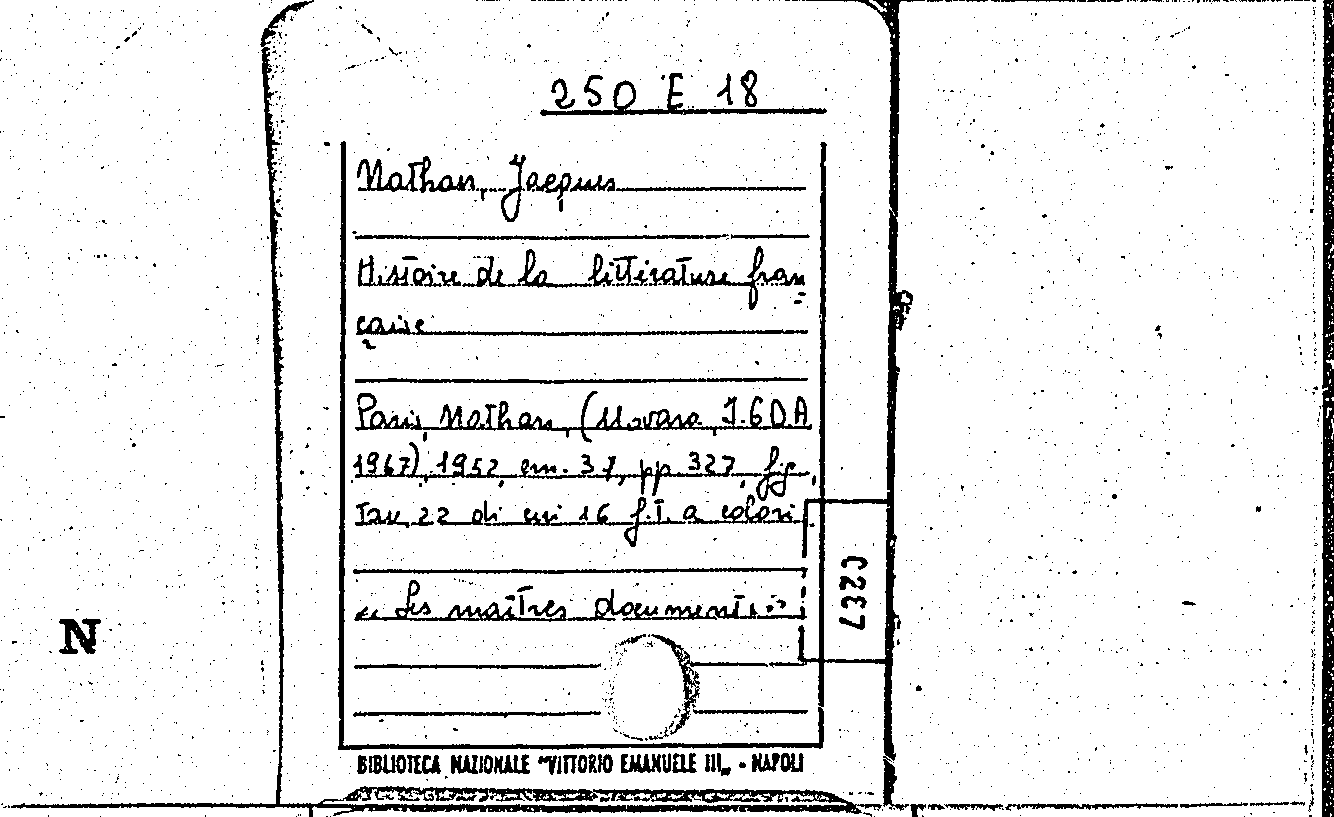 250 E 18
Nathan, Jacques
Histoire de la littérature fran
çaise
Paris, Nathan, (Novara, I.G.D.A
1967), 1952, cm. 31, pp 327, fig.,
Tav. 22 di cui 16 f.t. a colori.
« Les maîtres documents »
C237
N
BIBLIOTECA NAZIONALE "VITTORIO EMANUELE III„ - NAPOLI